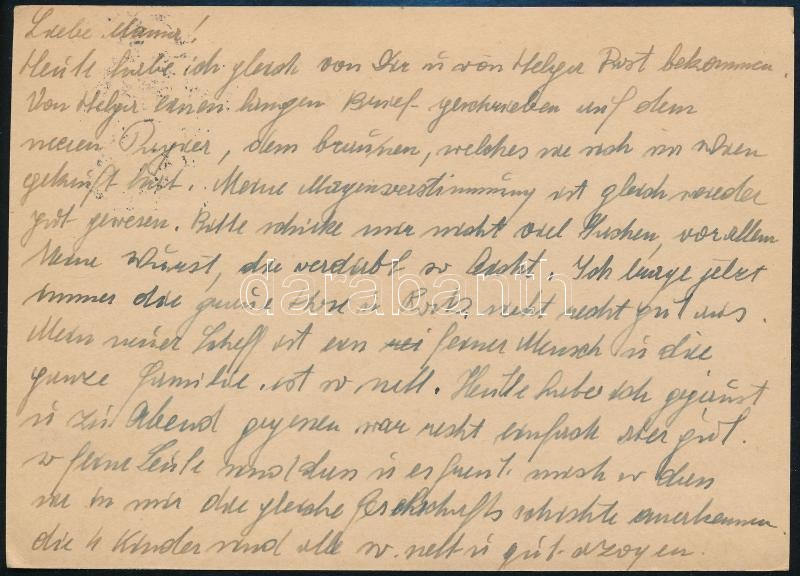 Liebe Mama!
Heute habe ich gleich von Dir u von Helga Post bekommen.
Von Helga einen langen Brief geschrieben auf dem
neuen Papier, dem braunen, welches sie noch in Wien
gekauft hat. Meine Magenverstimmung ist gleich wieder
gut gewesen. Bitte schicke mir nicht viel Sachen, vor allem
keine Wurst, die verdirbt so leicht. Ich trage jetzt
immer die graue Hose u Rock, sieht recht gut aus.
Mein neuer Scheff ist ein feiner Mensch u die
ganze Familie ist so nett. Heute habe ich gejaust
u zu Abend gegessen war recht einfach aber gut.
so feine Leute sind das u es freut mich so das
sie in mir die gleiche Gesellschaftsschichte anerkennen
die 4 Kinder sind alle so nett u gut erzogen.
darabanth